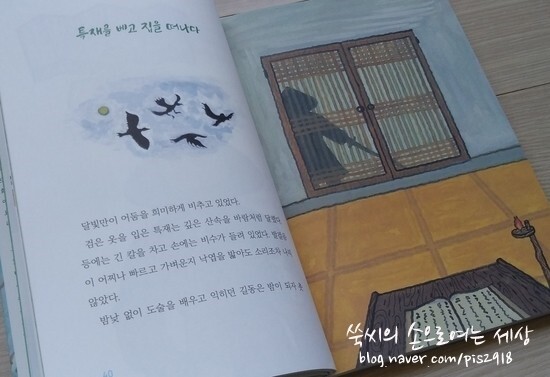 특재를 베고 집을 떠나다
달빛만이 어둠을 희미하게 비추고 있었다.
검은 옷을 입은 특재는 깊은 산속을 바람처럼 달렸다.
등에는 긴 칼을 차고 손에는 비수가 들려 있었다. 발걸음
이 어찌나 빠르고 가벼운지 낙엽을 밟아도 소리조차 나지
않았다.
밤낮 없이 도술을 배우고 익히던 길동은 밤이 되자
60
쑥씨의 손으로여는 세상
blog.naver.com/pis2918